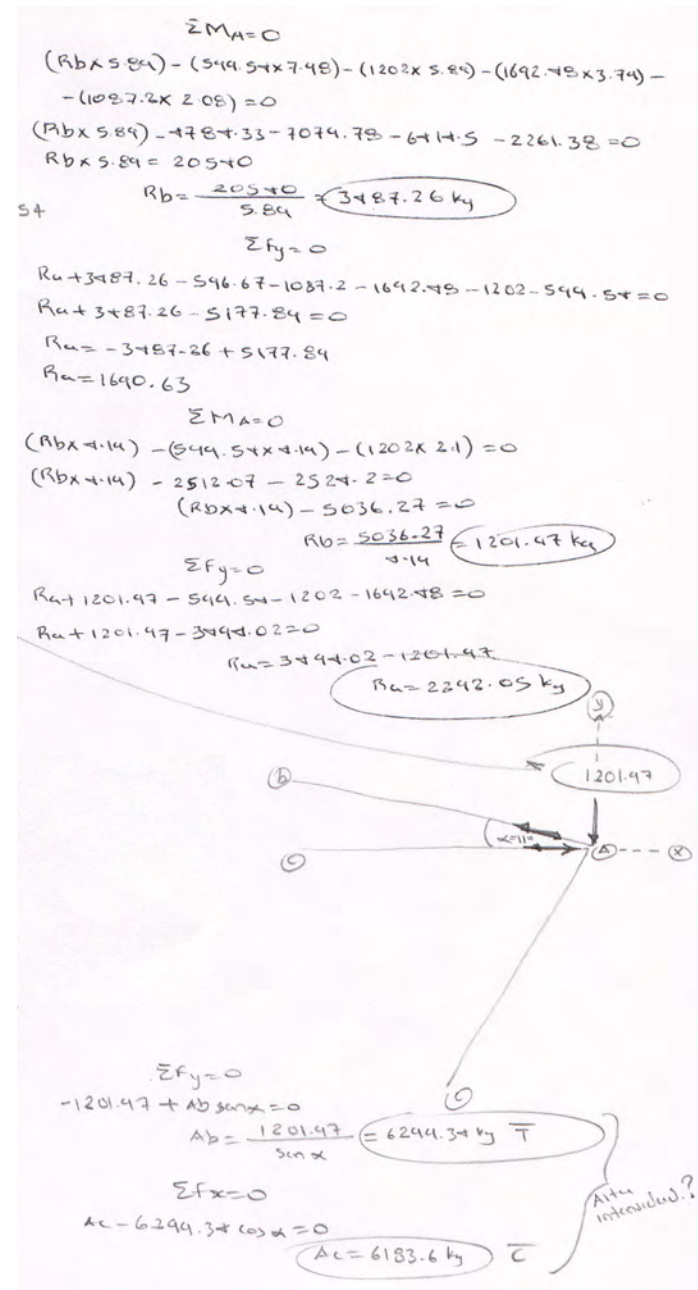 ΣMA=0
(Rbx5.89)-(599.54x7.98)-(1202x5.89)-(1692.48x3.79)-
-(1087.2x2.08)=0
(Rbx5.89)-4784.33-7079.78-6414.5-2261.38=0
Rbx5.89=20540
Rb=20540/5.89=3487.26 kg
54
ΣFy=0
Ra+3487.26-596.67-1087.2-1692.48-1202-599.54=0
Ra+3487.26-5177.89=0
Ra=-3487.26+5177.89
Ra=1690.63
ΣMA=0
(Rbx4.19)-(599.54x4.19)-(1202x2.1)=0
(Rbx4.19)-2512.07-2524.2=0
(Rbx4.19)-5036.27=0
Rb=5036.27/4.19=1201.97 kg
ΣFy=0
Ra+1201.97-599.54-1202-1692.48=0
Ra+1201.97-3494.02=0
Ra=3494.02-1201.97
Ra=2292.05 kg
y
1201.97
b
α=11°
c
A
x
c
ΣFy=0
-1201.97+Ab senα=0
Ab=1201.97/Sen α=6299.34 kg T
ΣFx=0
Ac-6299.34 cos α=0
Ac=6183.6 kg C
Alta
intensidad.?